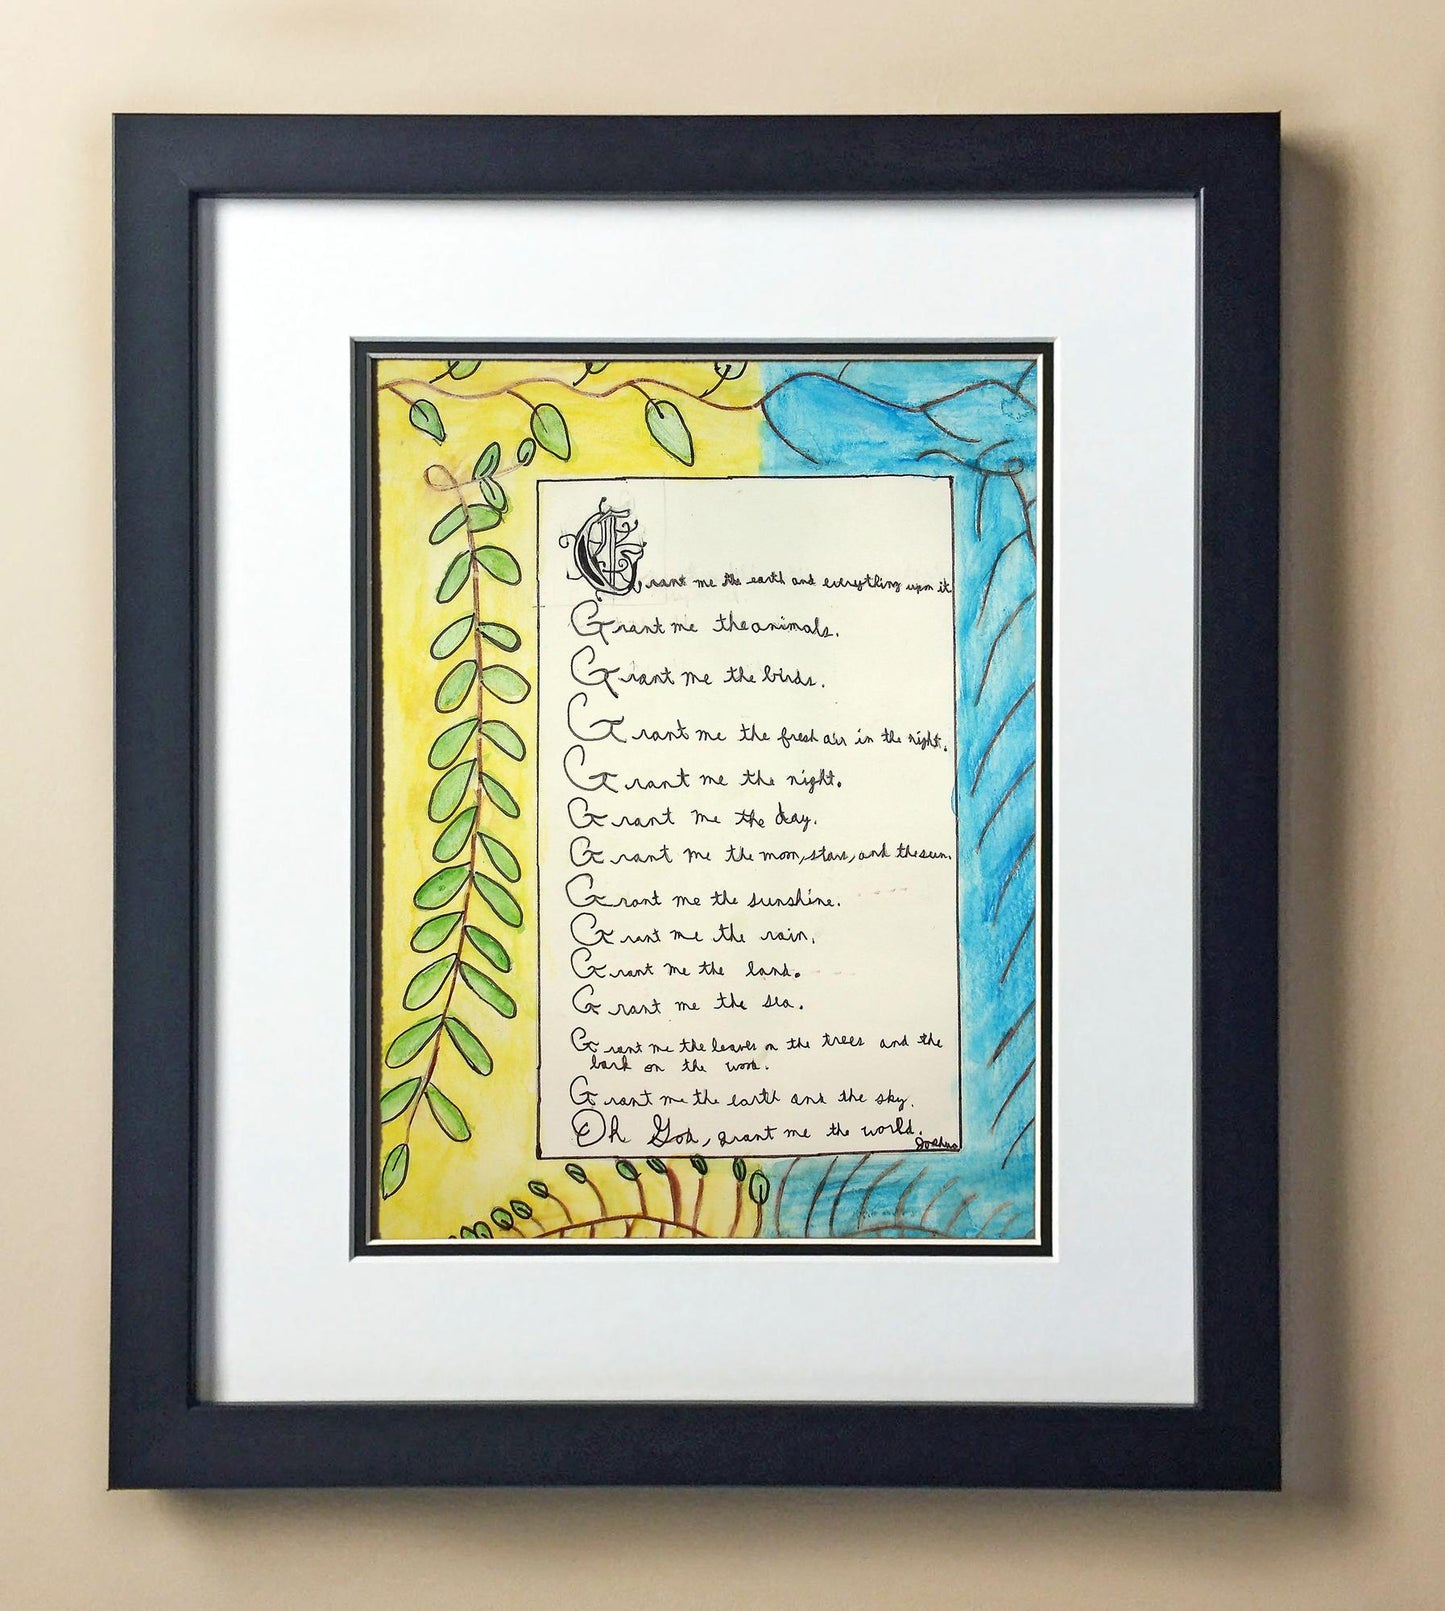 Grant me the earth and everything upon it
Grant me the animals.
Grant me the birds.
Grant me the fresh air in the night.
Grant me the night.
Grant me the day.
Grant me the moon, stars, and the sun.
Grant me the sunshine.
Grant me the rain.
Grant me the land.
Grant me the sea.
Grant me the leaves on the trees and the
bark on the wood.
Grant me the earth and the sky.
Oh God, grant me the world.
Joshua